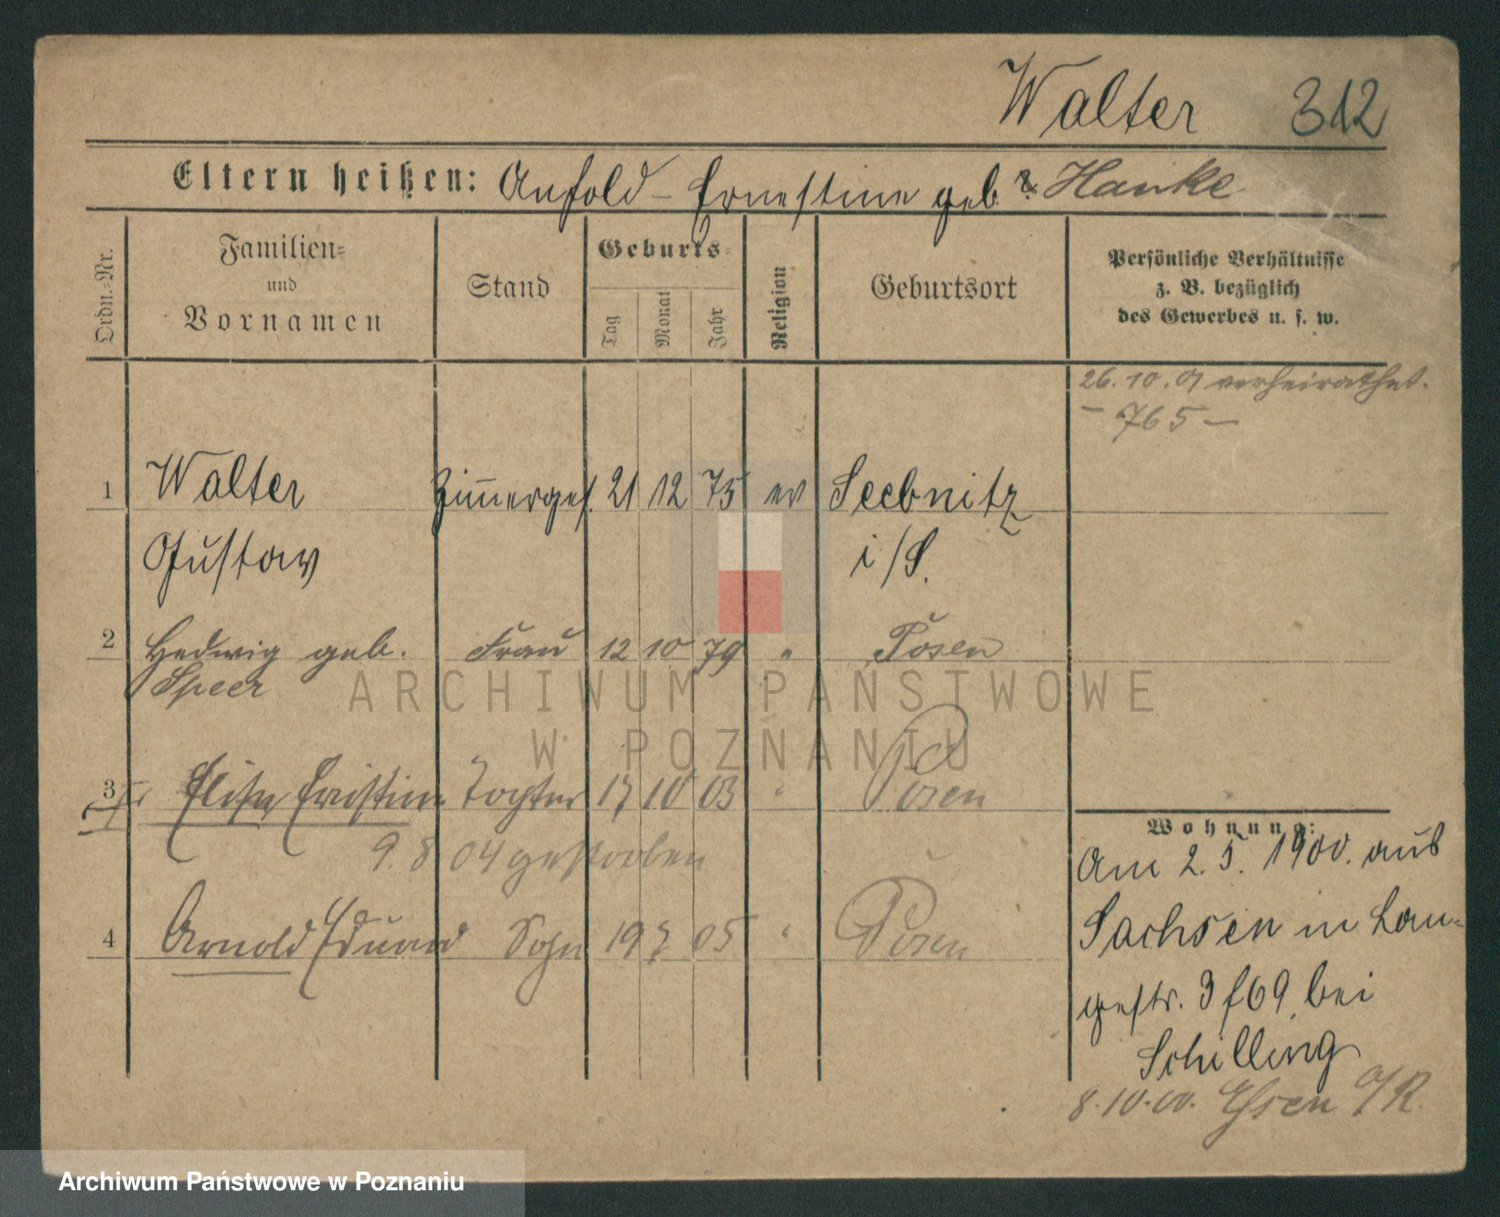 Walter 312
Eltern heißen: Anfold - Ernestine geb. Hanke
Ordn.-Nr.
Familien-
und
Vornamen
Stand
Geburts-
Tag
Monat
Jahr
Religion
Geburtsort
Persönliche Verhältnisse
z. B. bezüglich
des Gewerbes u. s. w.
26. 10. 01 verheirathet.
- 765 -
1 Walter Zimmerges. 21 12 75 ev Seebnitz
Gustav i/S.
2 Hedwig geb. Frau 12 10 79 " Posen
Speer
3 Elise Tochter 17 10 03 " Posen
9. 8 04 gestorben
4 Arnold Eduard Sohn 19 7 05 " Posen
Wohnung:
Am 2. 5. 1900. aus
Sachsen in Lan-
gestr. 3 f69 bei
Schilling
8. 10. 00. Essen a/R.
ARCHIWUM PAŃSTWOWE
W POZNANIU
Archiwum Państwowe w Poznaniu